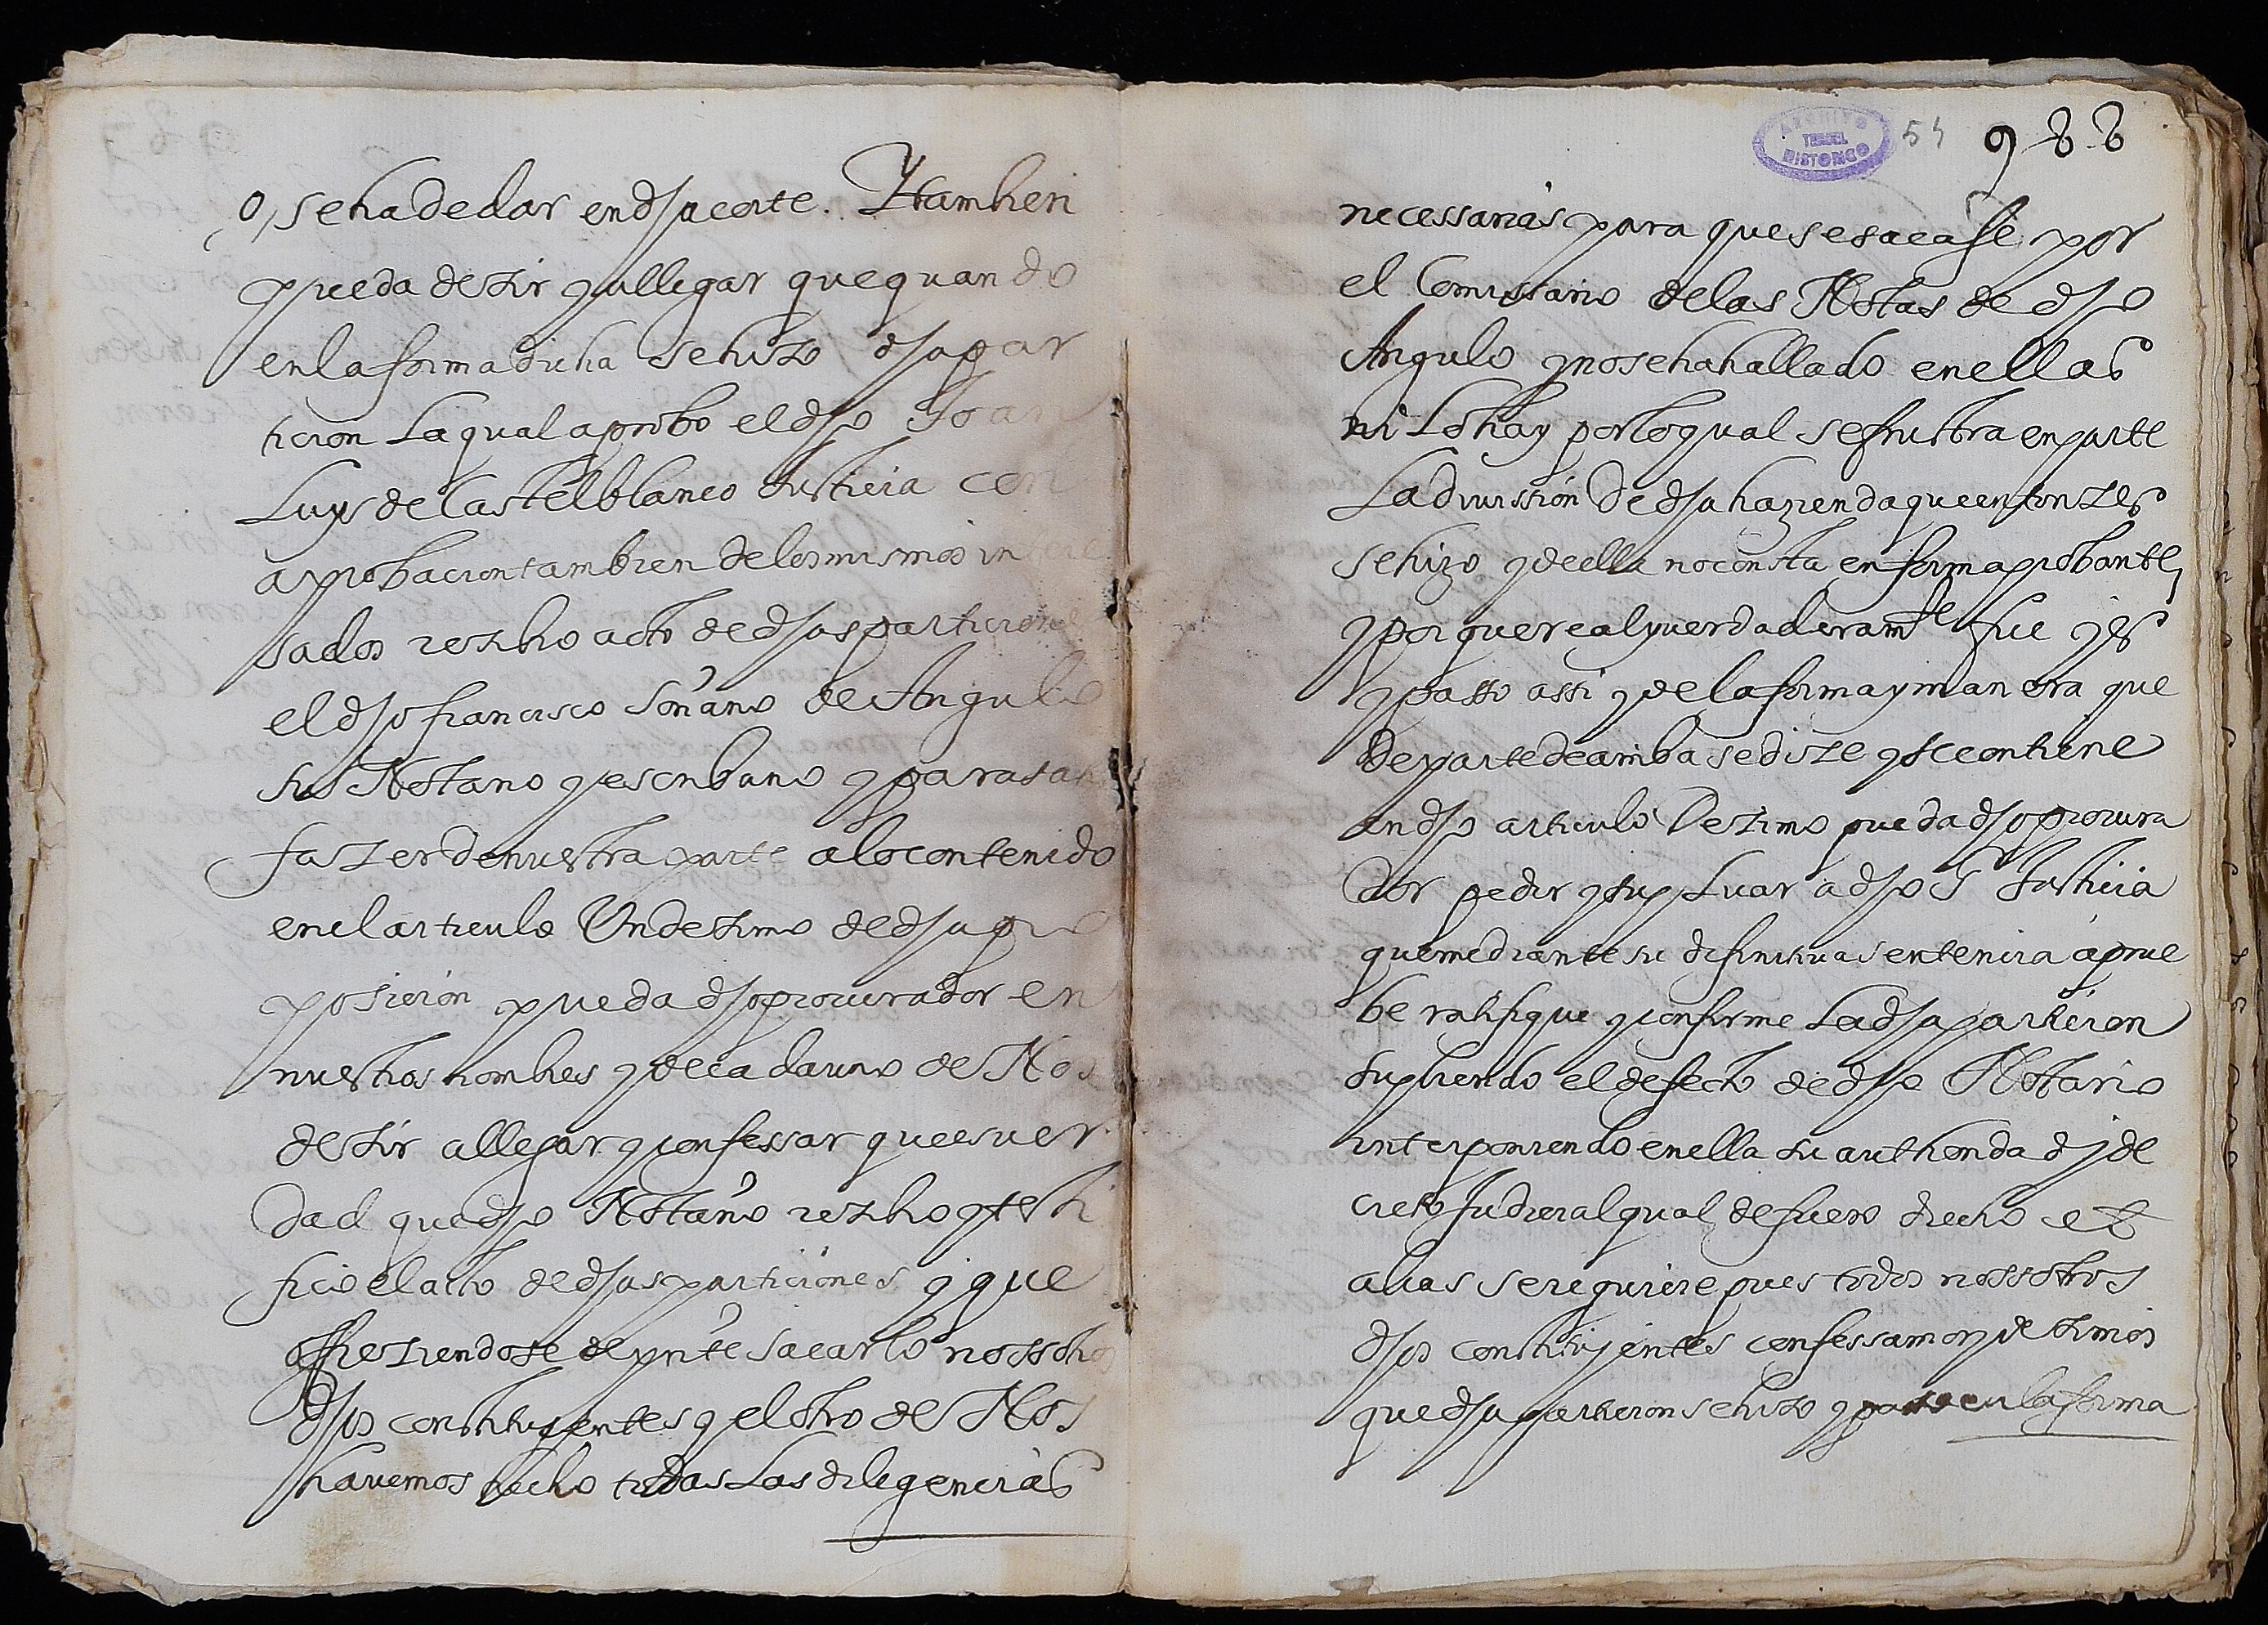 o, se ha de dar en dha corte. Y tambien
pueda dezir y allegar que quando
en la forma dicha se hizo dha par
ticion la qual aprobo el dho Joan
Luys de Castelblanco Justicia con
aprobacion tambien de los mismos
sados rezibio acto de dhas particiones
el dho francisco Soriano de Angulo
su Notario y escribano y para satis
fazer de nuestra parte a lo contenido
en el articulo Undezimo de dha pro
posicion pueda dho procurador en
nuestros nombres y de cada uno de Nos
dezir allegar y confessar que es ver
dad que dho Notario rezibio y testi
fico el acto de dhas particiones y que
offreziendose de pnte sacarlo nossotros
dhos constituyentes y el otro de Nos
havemos hecho todas las diligencias
54 988
ARCHIVO
TERUEL
HISTORICO
necessarias para que se sacasse por
el Comissario de las Notas de dho
Angulo y no se ha hallado en ellas
ni lo hay por lo qual se frustra en parte
la division de dha hazienda que entonzes
se hizo y de ella no consta en forma probante
y porque real y verdaderamte fue y es
y passo assi y de la forma y manera que
de parte de arriba se dize y se contiene
en dho articulo Dezimo pueda dho procura
dor pedir y supplicar a dho Sr Justicia
que mediante su difinitiva sentencia aprue
be ratifique y confirme la dha particion
supliendo el defecto de dho Notario
interponiendo en ella su authoridad y de
creto Judicial qual de fuero drecho et
alias se requiere pues todos nossotros
dhos constituyentes confessamos y dezimos
que dha particion se hizo y passo en la forma